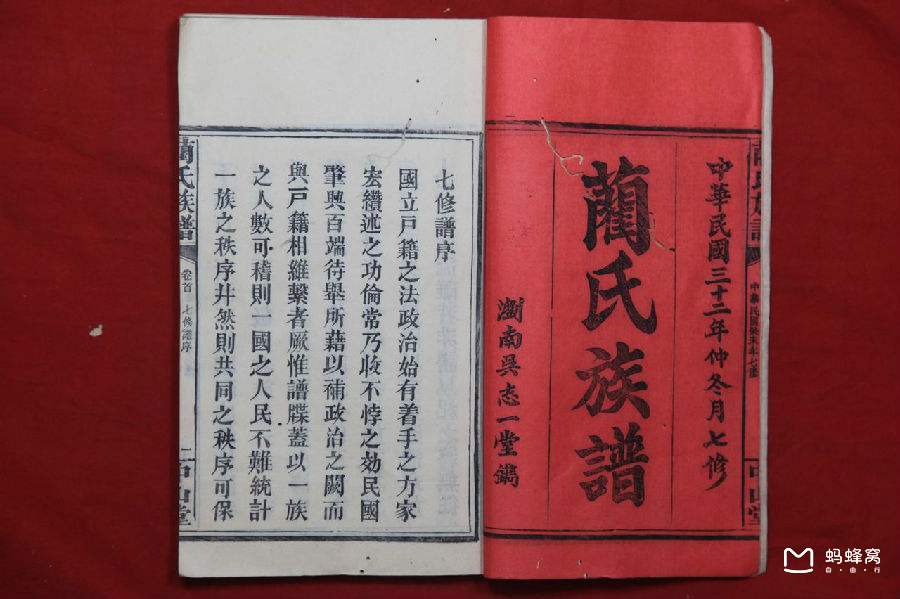 中華民國三十二年仲冬月七修
藺氏族譜
瀏南吳志一堂鐫
七修譜序
國立戶籍之法政治始有着手之方家
宏纘述之功倫常乃收不悖之効民國
肇興百端待舉所藉以補政治之闕而
與戶籍相維繫者厥惟譜牒蓋以一族
之人數可稽則一國之人民不難統計
一族之秩序井然則共同之秩序可保
藺氏族譜
卷首
七修譜序
二
中山堂
蚂蜂窝
自由行